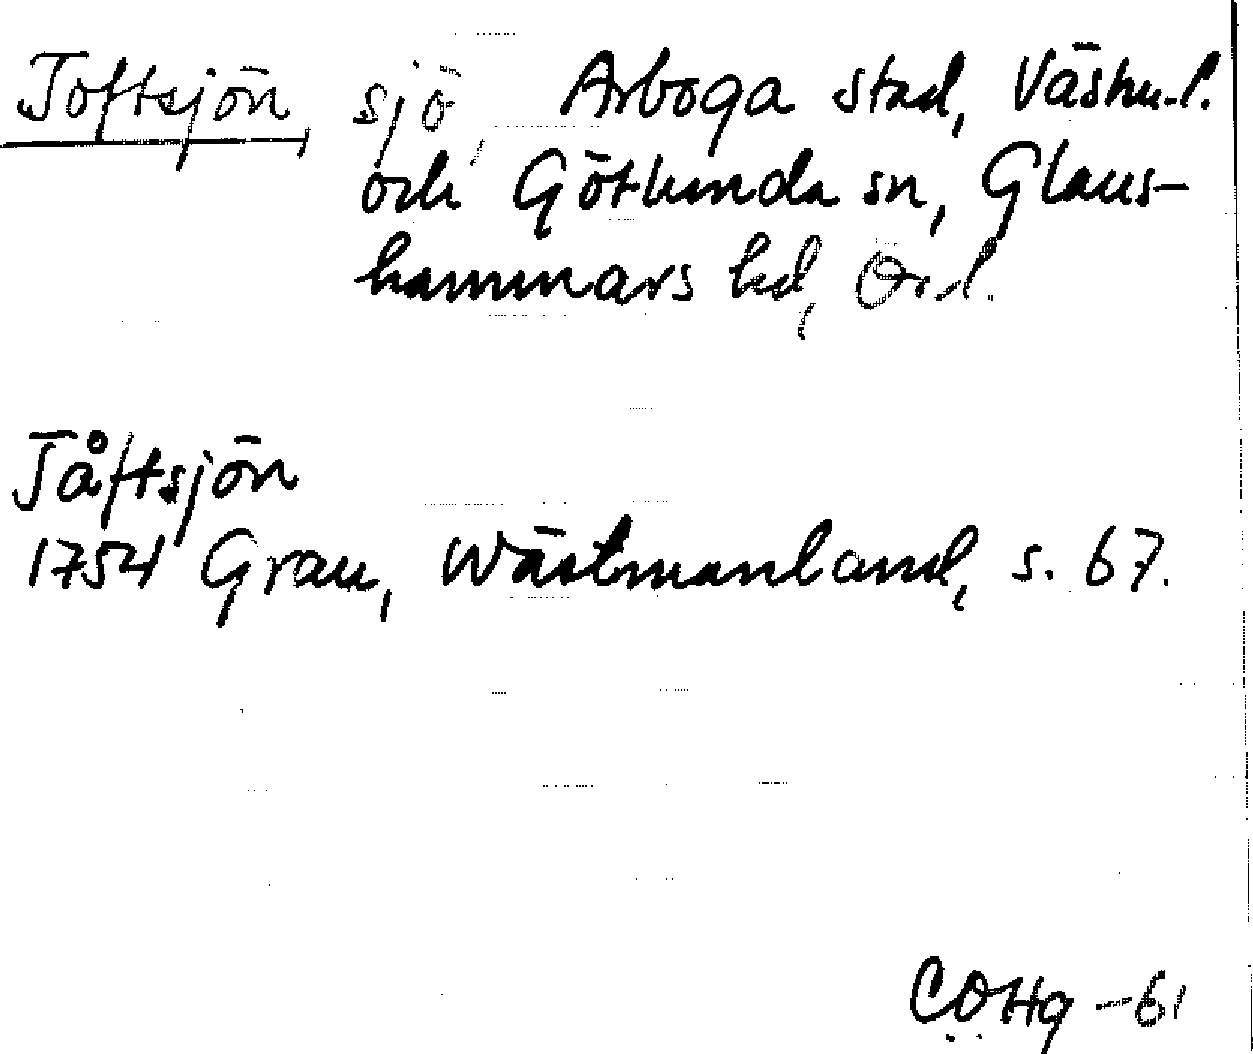 Toftsjön, sjö, Arboga stad, Västm.l.
och Götlunda sn, Glans-
hammars hd, Ör.l.
Tåftsjön
1754 Grau, Wästmanland, s. 67.
COHq -61